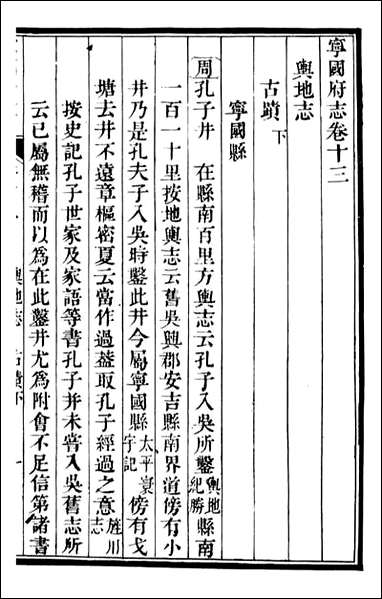 寧國府志卷十三
輿地志
古蹟下
寧國縣
周孔子井　在縣南百里方輿志云孔子入吳所鑿輿地紀勝縣南
一百一十里按地輿志云舊吳興郡安吉縣南界道傍有小
井乃是孔夫子入吳時鑿此井今屬寧國縣太平寰宇記傍有戈
塘去井不遠章樞密夏云當作過蓋取孔子經過之意旌川志
按史記孔子世家及家語等書孔子并未嘗入吳舊志所
云已屬無稽而以為在此鑿井尤為附會不足信第諸書
輿地志　古蹟下　一